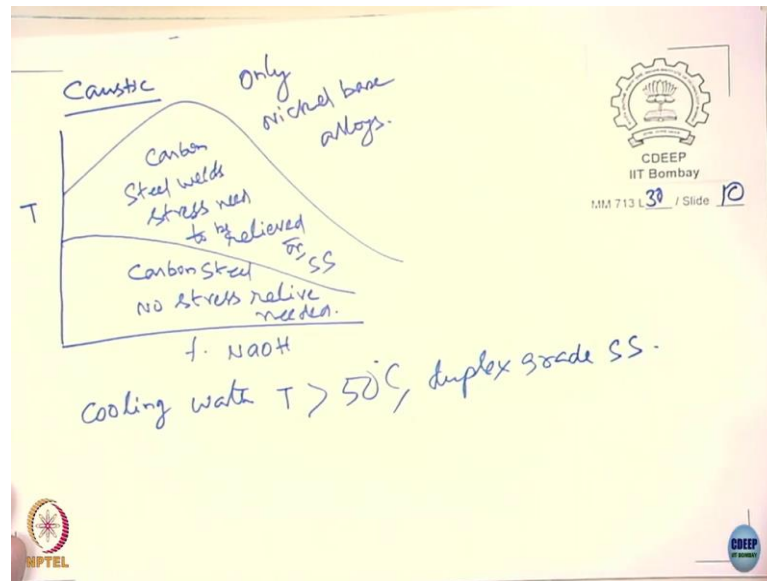 Caustic
Only
nickel base
alloys.
Carbon
Steel welds
stress need
to be relieved
or SS
T
Carbon Steel
No stress relive
needed.
%. NaOH
Cooling water T > 50°C, duplex grade SS.
CDEEP
IIT Bombay
MM 713 L 30 / Slide 10
NPTEL
CDEEP
IIT BOMBAY